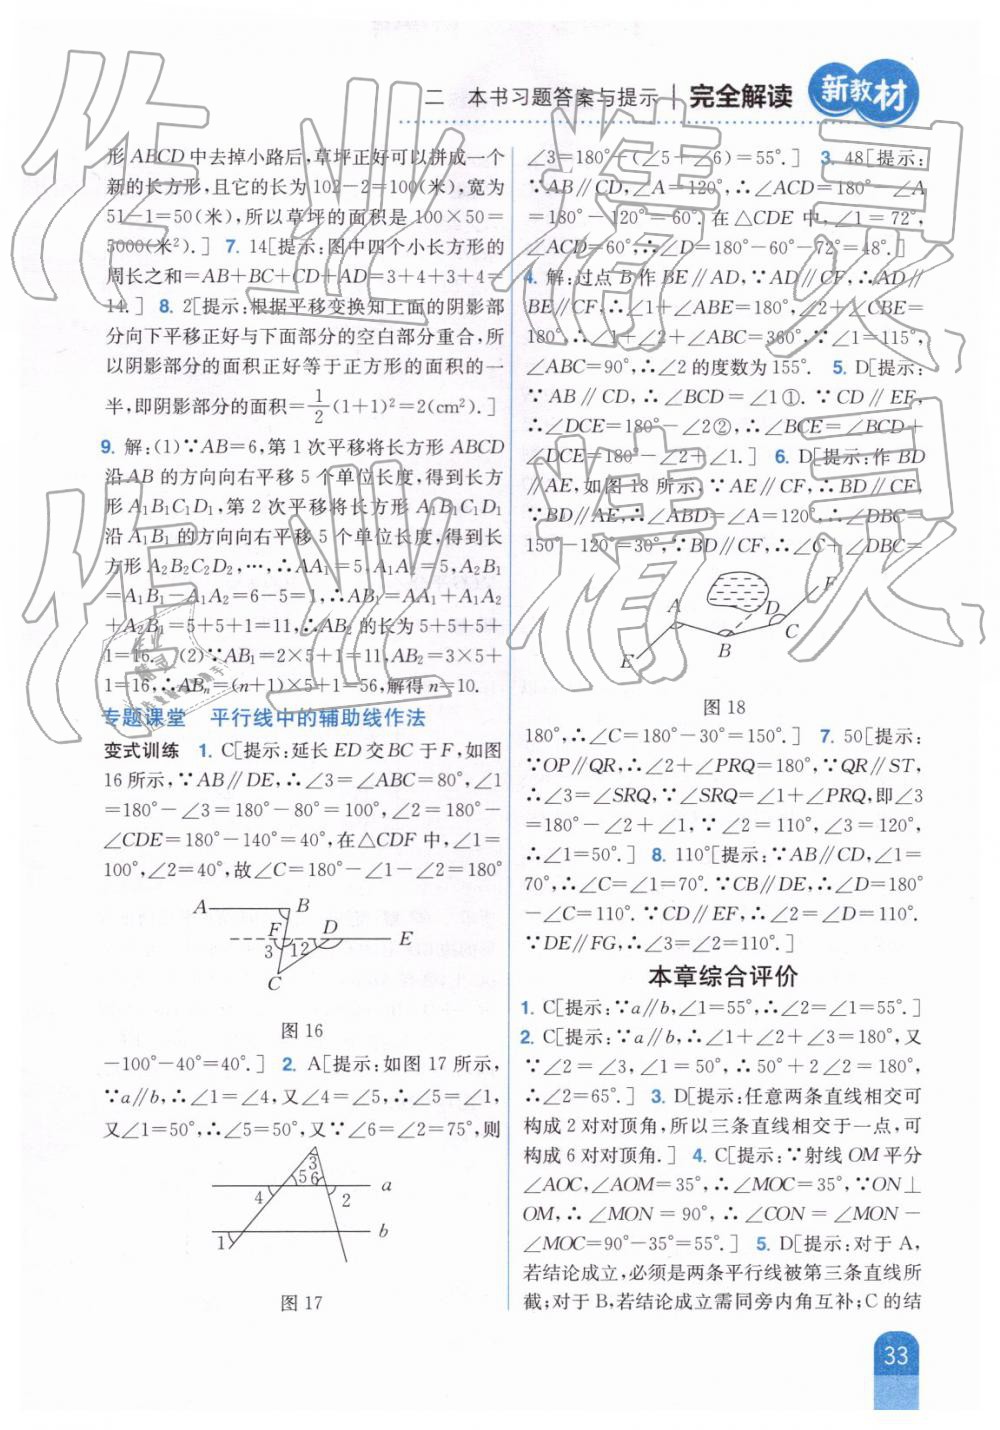 二 本书习题答案与提示 | 完全解读 新教材
形ABCD中去掉小路后,草坪正好可以拼成一个
新的长方形,且它的长为102-2=100(米),宽为
51-1=50(米),所以草坪的面积是100×50=
5000(米²).] 7. 14[提示:图中四个小长方形的
周长之和=AB+BC+CD+AD=3+4+3+4=
14.] 8. 2[提示:根据平移变换知上面的阴影部
分向下平移正好与下面部分的空白部分重合,所
以阴影部分的面积正好等于正方形的面积的一
半,即阴影部分的面积=1/2(1+1)²=2(cm²).]
9. 解:(1)∵AB=6,第1次平移将长方形ABCD
沿AB的方向向右平移5个单位长度,得到长方
形A₁B₁C₁D₁,第2次平移将长方形A₁B₁C₁D₁
沿A₁B₁的方向向右平移5个单位长度,得到长
方形A₂B₂C₂D₂,…,∴AA₁=5,A₁A₂=5,A₂B₁
=A₁B₁-A₁A₂=6-5=1,∴AB₁=AA₁+A₁A₂
+A₂B₁=5+5+1=11,∴AB₂的长为5+5+5+
1=16. (2)∵AB₁=2×5+1=11,AB₂=3×5+
1=16,∴ABₙ=(n+1)×5+1=56,解得n=10.
专题课堂 平行线中的辅助线作法
变式训练 1. C[提示:延长ED交BC于F,如图
16所示,∵AB∥DE,∴∠3=∠ABC=80°,∠1
=180°-∠3=180°-80°=100°,∠2=180°-
∠CDE=180°-140°=40°,在△CDF中,∠1=
100°,∠2=40°,故∠C=180°-∠1-∠2=180°
A B
F D E
3 1 2
C
图16
-100°-40°=40°.] 2. A[提示:如图17所示,
∵a∥b,∴∠1=∠4,又∠4=∠5,∴∠5=∠1,
又∠1=50°,∴∠5=50°,又∵∠6=∠2=75°,则
3
5 6
4 2 a
1 b
图17
∠3=180°-(∠5+∠6)=55°.] 3. 48[提示:
∵AB∥CD,∠A=120°,∴∠ACD=180°-∠A
=180°-120°=60°.在△CDE中,∠1=72°,
∠ACD=60°,∴∠D=180°-60°-72°=48°.]
4. 解:过点B作BE∥AD,∵AD∥CF,∴AD∥
BE∥CF,∴∠1+∠ABE=180°,∠2+∠CBE=
180°,∴∠1+∠2+∠ABC=360°,∵∠1=115°,
∠ABC=90°,∴∠2的度数为155°. 5. D[提示:
∵AB∥CD,∴∠BCD=∠1①.∵CD∥EF,
∴∠DCE=180°-∠2②,∴∠BCE=∠BCD+
∠DCE=180°-∠2+∠1.] 6. D[提示:作BD
∥AE,如图18所示,∵AE∥CF,∴BD∥CF,
∵BD∥AE,∴∠ABD=∠A=120°,∴∠DBC=
150°-120°=30°,∵BD∥CF,∴∠C+∠DBC=
A D F
C
E B
图18
180°,∴∠C=180°-30°=150°.] 7. 50[提示:
∵OP∥QR,∴∠2+∠PRQ=180°,∵QR∥ST,
∴∠3=∠SRQ,∵∠SRQ=∠1+∠PRQ,即∠3
=180°-∠2+∠1,∵∠2=110°,∠3=120°,
∴∠1=50°.] 8. 110°[提示:∵AB∥CD,∠1=
70°,∴∠C=∠1=70°.∵CB∥DE,∴∠D=180°
-∠C=110°.∵CD∥EF,∴∠2=∠D=110°.
∵DE∥FG,∴∠3=∠2=110°.]
本章综合评价
1. C[提示:∵a∥b,∠1=55°,∴∠2=∠1=55°.]
2. C[提示:∵a∥b,∴∠1+∠2+∠3=180°,又
∵∠2=∠3,∠1=50°,∴50°+2∠2=180°,
∴∠2=65°.] 3. D[提示:任意两条直线相交可
构成2对对顶角,所以三条直线相交于一点,可
构成6对对顶角.] 4. C[提示:∵射线OM平分
∠AOC,∠AOM=35°,∴∠MOC=35°,∵ON⊥
OM,∴∠MON=90°,∴∠CON=∠MON-
∠MOC=90°-35°=55°.] 5. D[提示:对于A,
若结论成立,必须是两条平行线被第三条直线所
截;对于B,若结论成立需同旁内角互补;C的结
33
作业精灵
作业精灵